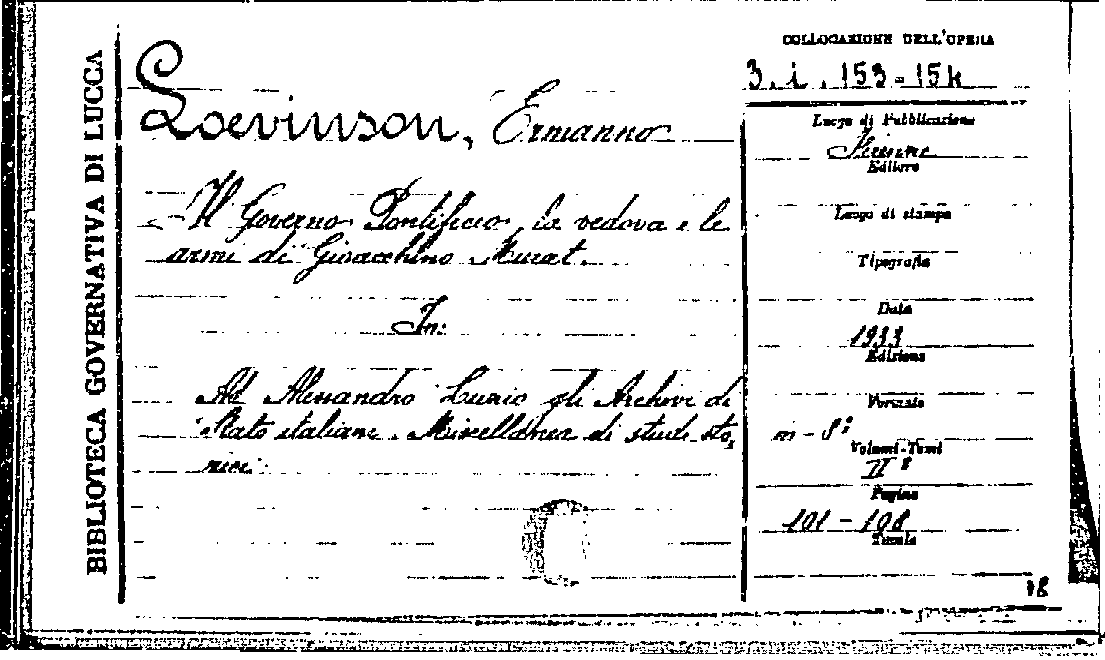 BIBLIOTECA GOVERNATIVA DI LUCCA
Loevinson, Ermanno
Il Governo Pontificio, la vedova e le
armi di Gioacchino Murat.
In:
Ad Alessandro Luzio gli Archivi di
Stato italiani. Miscellanea di studi sto,
rici.
COLLOCAZIONE DELL'OPERA
3. i. 153-154
Luogo di Pubblicazione
Firenze
Editore
Luogo di stampa
Tipografia
Data
1933
Edizione
Formato
in - 8º
Volumi-Tomi
IIº
Pagine
101 - 108
Tavole
18